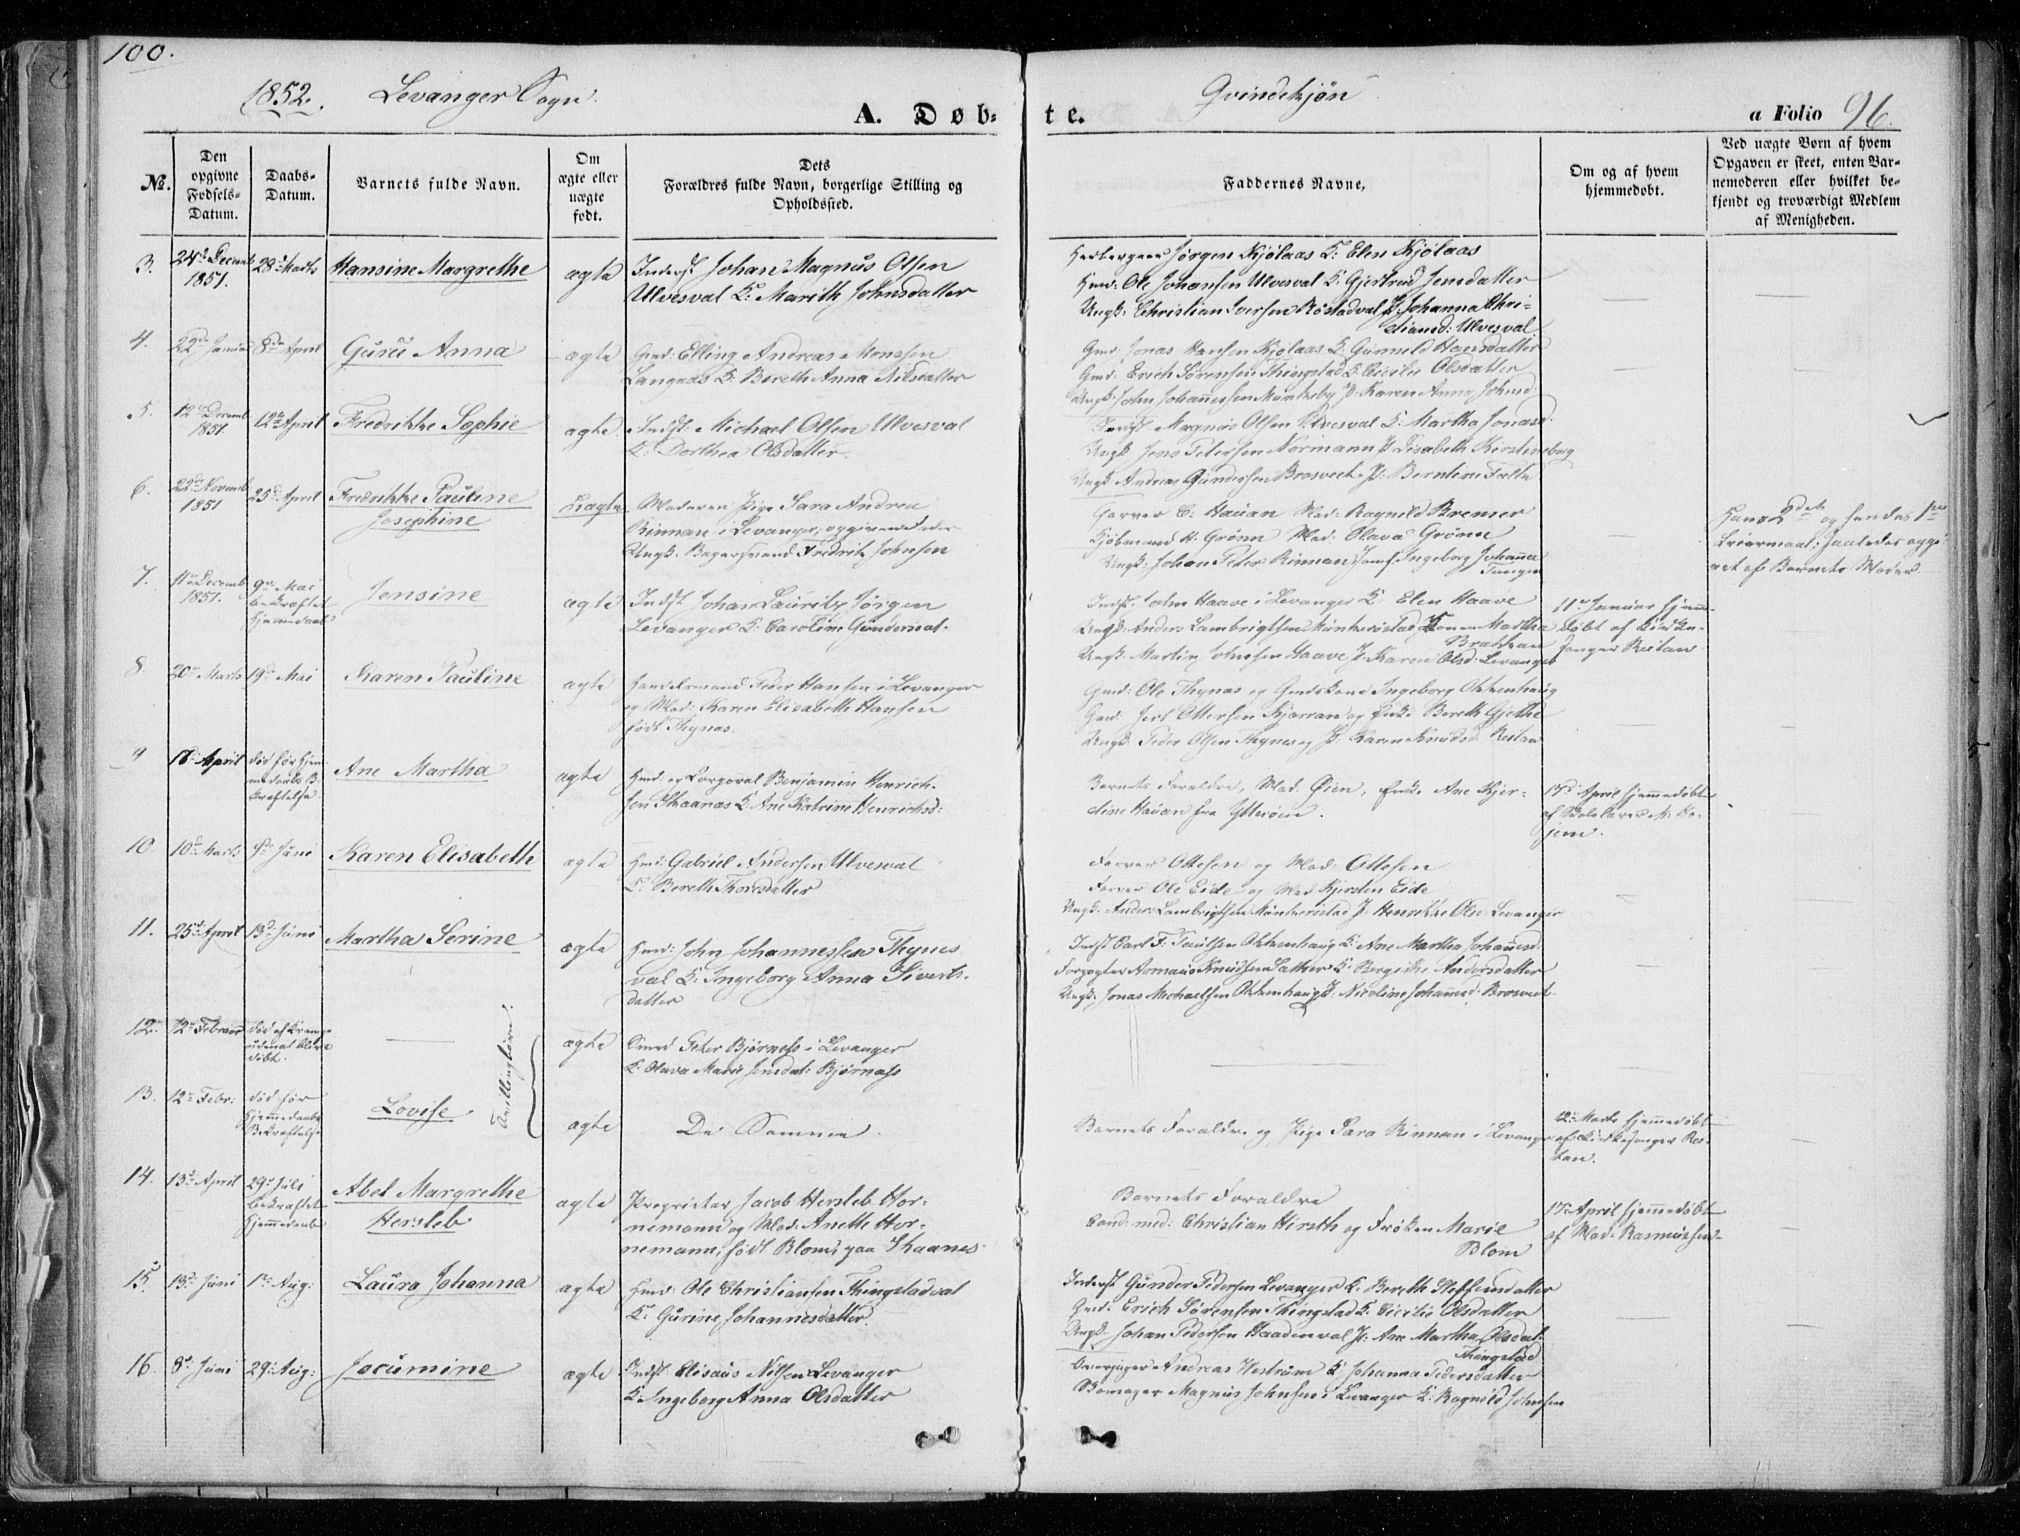 100.
1852. Levanger Sogn.
Qvindekjøn
A. Døb-
te.
a Folio 96.
№.
Den opgivne Fødsels-Datum.
Daabs-Datum.
Barnets fulde Navn.
Om ægte eller uægte født.
Dets Forældres fulde Navn, borgerlige Stilling og Opholdssted.
Faddernes Navne,
Om og af hvem hjemmedøbt.
Ved uægte Børn af hvem Opgaven er skeet, enten Barnemoderen eller hvilket bekjendt og troværdigt Medlem af Menigheden.
3. 24de Decemb 1851. 28de Marts Hansine Margrethe ægte
Inderst Johan Magnus Olsen
Ulvesval K. Marith Johnsdatter
Jørgen Kjølaas K: Elen Kjølaas
Hmd: Ole Johansen Ulvesval K: Gjertrud Jensdatter
Ungk: Christian Iversen Røstadval P: Johanna Chri-
stiansd: Ulvesval
4. 22de Januar 8de April Guru Anna ægte
Gmd: Elling Andreas Monssen
Langaas K: Bereth Anna Nilsdatter
Gmd: Jonas Hansen Kjølaas K. Gunnild Hansdatter
Gmd: Erich Sørensen Thingstad K. Cicilie Olsdatter
Ungk: John Johannessen Munkeby P: Karen Anna Johnsd:
5. 12te Decemb 1851. 12te April Fredrikke Sophie ægte
Indst. Michael Olsen Ulvesval
K: Dorthea Olsdatter.
Indst. Magnus Olsen Ulvesval K: Martha Jonasd:
Ungk Jens Petersen Normann P. Lisabeth Kirstineborg
Ungk Andreas Gundersen Brosveet P: Berntine Falta
6. 22de Novemb 1851 25de April Fredrikke Pauline
Josephine uægte
Moderen Pige Sara Andrea
Rinnan i Levanger, opgiven Fader
Ungk. Bagersvend Fredrik Johnsen
Garver C: Hauan Mad: Ragnild Bremer
Kjøbmand H. Grønn Mad: Olava Grønn
Ungk: Johan Peter Rinnan Jomf. Ingeborg Johanna
Tungen
Hans 2det og hendes 1ste
Leiermaal; saaledes opgi-
vet af Barnets Moder.
7. 11te Decemb 1851. 9de Mai bekræftet Hjemmedaab Jensine ægte
Indst Johan Lauritz Jørgen
Levanger K. Caroline Gundersdat:
Indst: John Haave i Levanger K: Elen Haave
Ungk. Anders Lambrigtsen Munkerøstad Martha
Brakhan
Ungk Martin Johnsen Haave P. Karen Olsd. Levanger
11te Januar hjemme-
døbt af Kirkesanger Restan
8. 20de Marts 19de Mai Karen Pauline ægte
Handelsmand Peder Hansen i Levanger
og Mad: Karen Elisabeth Hansen
født Thynes.
Gmd: Ole Thynes og Gmdskone Ingeborg Okkenhaug
Ungk Peder Olsen Thynes og P. Karen Knudsd. Restan
9 18de April død før Hjemmedaabs Bekræftelse Ane Martha ægte
Hmd: og Corporal Benjamin Henrich-
sen Skaanæs K. Ane Katrine Henrichsd:
Barnets Forældre, Mad: Øien, Enke Ane Kjer-
stine Hauan fra Ytterøen.
April hjemmedøbt
10. 10de Marts 9de Juni Karen Elisabeth ægte
Hmd: Gabriel Andersen Ulvesval
K. Bereth Thoresdatter
Farver Ottesen og Mad: Ottesen
Farver Ole Eide og Mad. Kjersten Eide
Ungk. Anders Lambrigtsen Munkerøstad P. Henrikke Olsd: Levanger
11. 25de April 13de Juni Martha Serine ægte
Hmd: John Johannessen Thynes
val K: Ingeborg Anna Siverts-
datter
Indst Carl F. Paulsen Okkenhaug K: Ane Martha Johannesd:
Forpagter Arnaus Knudsen Salthe K. Bergithe Andersdatter
Ungk. Jonas Michaelsen Okkenhaug P. Nicoline Johannesd: Brosveet
12. 12te Februar død af Krampe uden at blive døbt. ægte
Tvillingbørn.
Smed Peter Bjørness i Levanger
K: Olava Marie Jensdat: Bjørness
13. 12te Febr: død før Hjemmedaabs Bekræftelse Lovise ægte
De Samme
Barnets Forældre og Pige Sara Rinnan i Levanger
12te Marts hjemmedøbt
af Kirkesanger Res-
tan.
14. 13de April 29de Juli bekræftet Hjemmedaab Abel Margrethe
Hersleb ægte
Proprietær Jacob Hersleb Hor-
nemann og Mad: Anette Hor-
nemann, født Blom, paa Skaanes.
Barnets Forældre
Cand: med: Christian Hirsth og Frøken Marie
Blom
17de April hjemmedøbt
af Mad. Rasmussen
15. 13de Juni 1ste Aug: Laura Johanna ægte
Hmd: Ole Christiansen Thingstadval
K: Gurine Johannesdatter.
Inderst Gunder Pedersen Levanger K. Bereth Steffensdatter
Gmd: Erich Sørensen Thingstad K. Cicilie Olsdatter
Ungk: Johan Pedersen Haadenval P: Ane Martha Olsdat:
Thingstad
16. 8de Juni 29de Aug: Jocumine ægte
Indst Elisæus Nilsen Levanger
K. Ingeborg Anna Olsdatter
Andreas Westrum K. Johanna Pedersdatter
Magnus Johnsen i Levanger K: Ragnild Johnsen